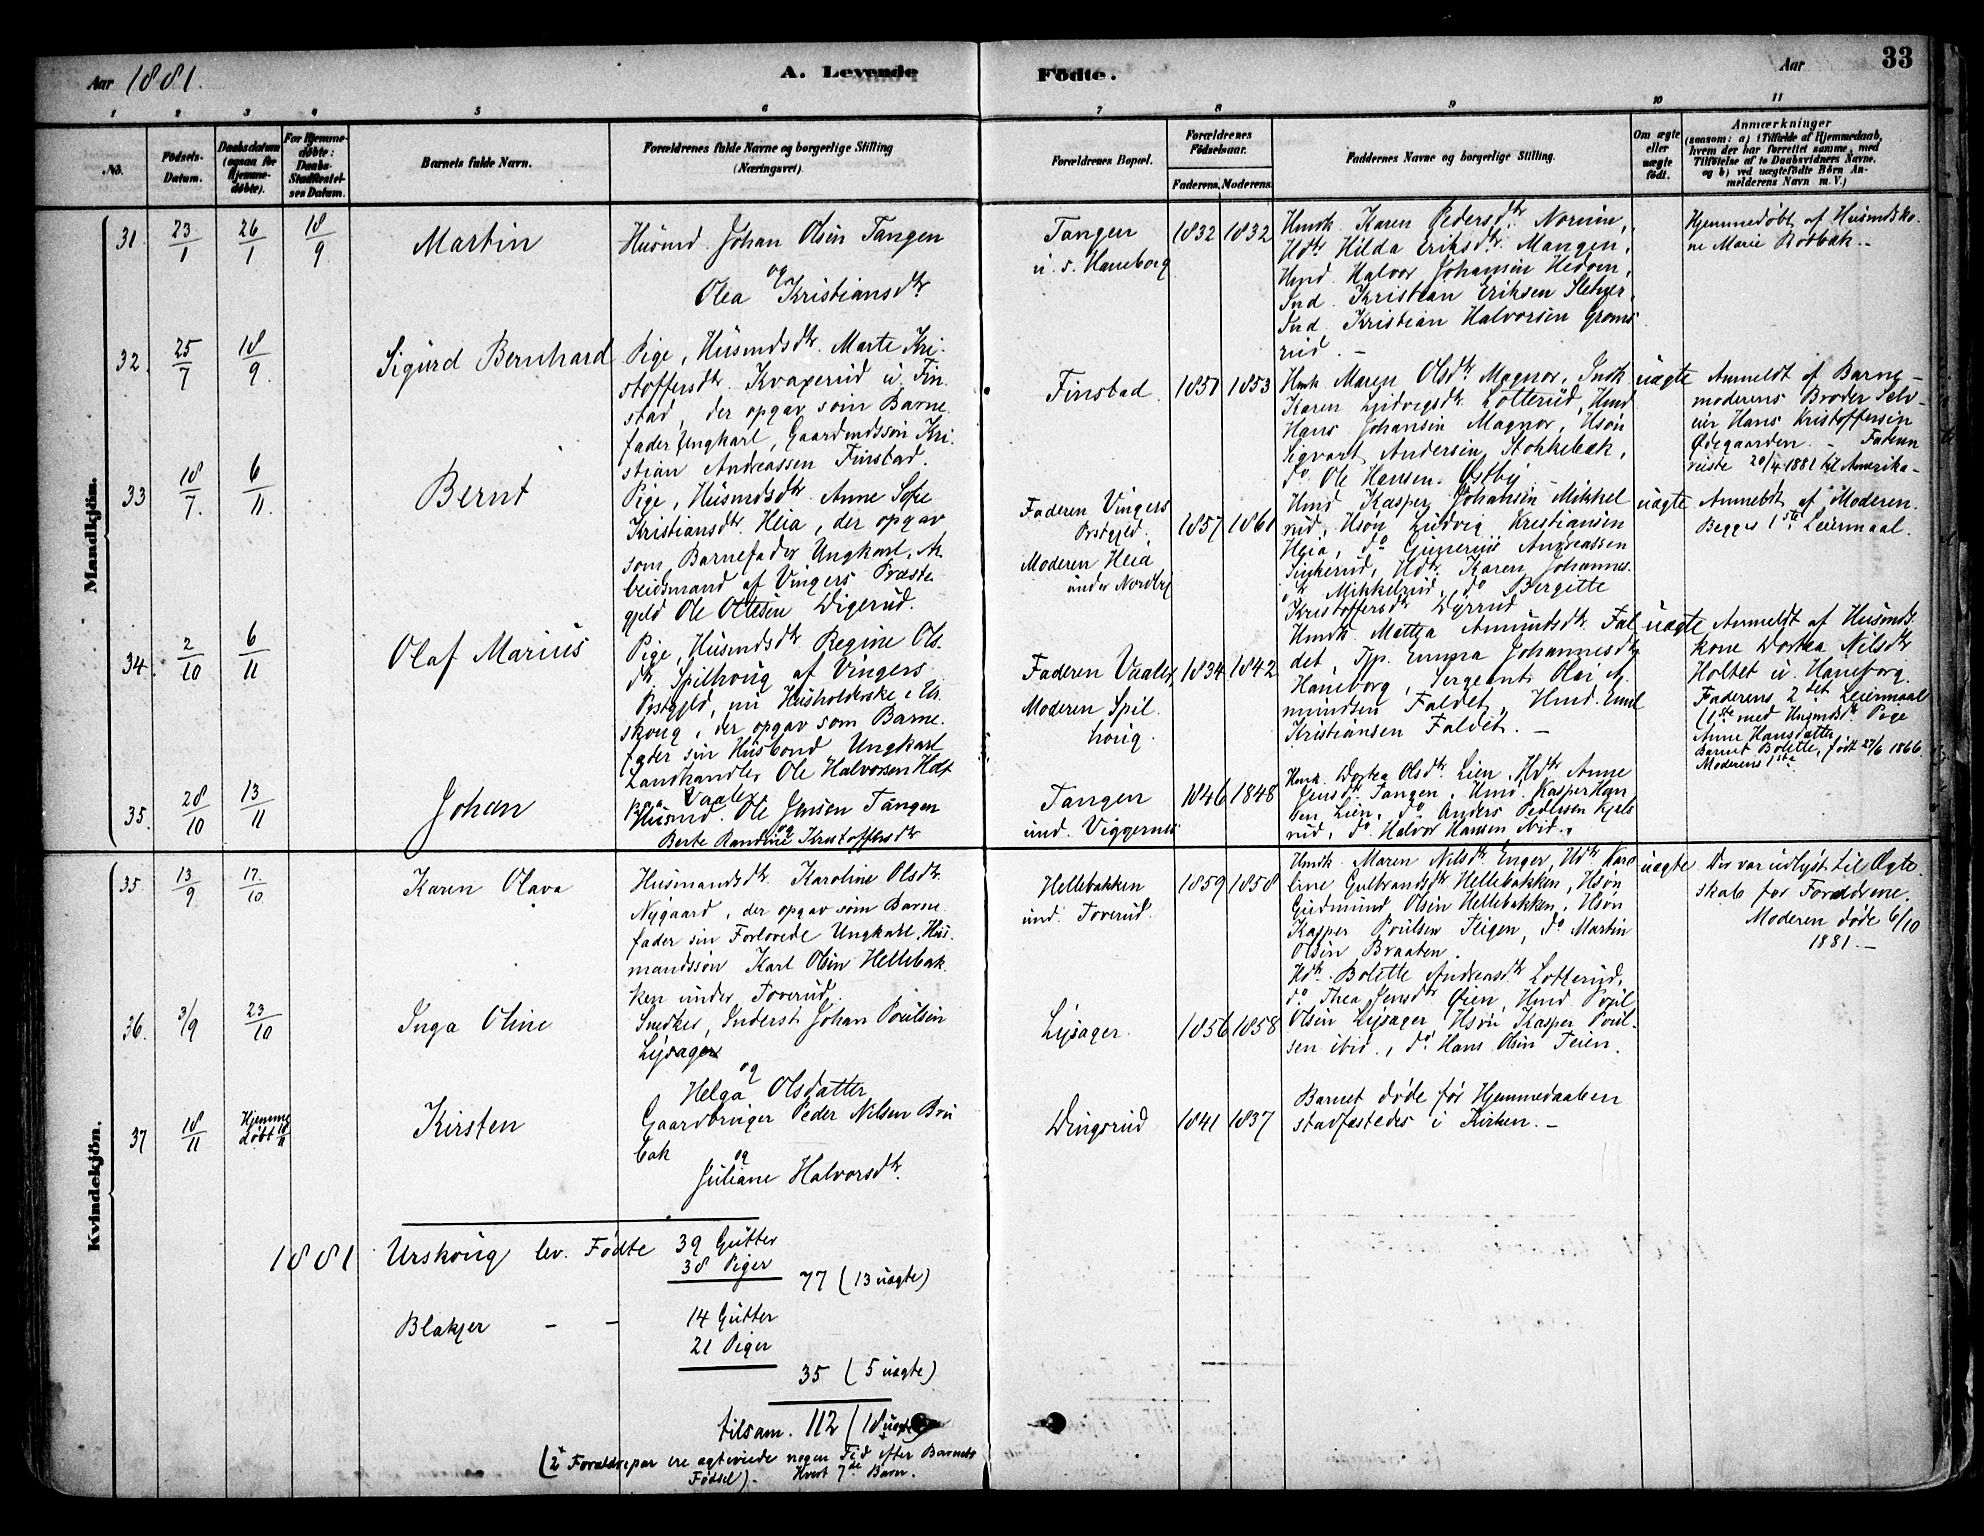 Aar 1881.
A. Levende
Födte.
Aar
33
1 2 3 4 5 6 7 8 9 10 11
No.
Födsels-Datum.
Daabsdatum (ogsaa for Hjemme-døbte).
For Hjemme-døbte: Daabs-Stadfæstel-ses Datum.
Barnets fulde Navn.
Forældrenes fulde Navne og borgerlige Stilling (Næringsvei).
Forældrenes Bopæl.
Forældrenes Fødselsaar.
Faderens. Moderens.
Faddernes Navne og borgerlige Stilling.
Om ægte eller uægte født.
Anmærkninger
(saasom: a) i Tilfælde af Hjemmedaab, hvem der har forrettet samme, med Tilføielse af to Daabsvidners Navne, og b) ved uægtefødte Børn Anmelderens Navn m. V.)
Mandkjön.
31. 23/1 26/1 18/9 Martin
Husmd. Johan Olsen Tangen
og
Olea Kristiansdtr.
Tangen
u. s. Haneborg
1832 1832
Hmdk. Karen Pedersdtr. Noreim,
Hdtr. Hilda Eriksdtr. Mangen,
Hmd. Halvor Johansen Hedven,
Ind. Kristian Eriksen Sletner,
Ind. Kristian Halvorsen Groms
rud. –
Hjemmedøbt af Husmdsko-
ne Marie Rosbak. –
32. 25/7 18/9 Sigurd Bernhard
Pige, Husmdsdtr. Marte Kri-
stoffersdtr. Kvaxerud u. Fin-
stad, der opgav som Barne-
fader Ungkarl, Gaardmdssøn Kri-
stian Andreassen Finstad.
Finstad. 1850 1853
Hmk Maren Olsdtr. Magnor, Indk
Karen Ludvigsdtr. Lotterud, Hmd
Hans Johansen Magnor, Hsøn
Sigvart Andersen Stokkebak,
do Ole Hansen Østby. –
uægte
Anmeldt af Barne-
moderens Broder Selv-
eier Hans Kristoffersen
Ødegaarden. – Faderen
reiste 20/4 1881 til Amerika –
33 18/7. 6/11. Bernt
Pige, Husmdsdtr. Anne Sofie
Kristiansdtr. Heia, der opgav
som Barnefader Ungkarl, Ar-
beidsmand af Vingers Præste-
gjeld Ole Ottesen Digerud.
Faderen Vingers
Prstgjld.
Moderen Heia
under Nordby
1857 1861
Hmd Kasper Johansen Mikkel
rud, Hsøn Ludvig Kristiansen
Heia, do Gunerius Andreassen
Sinkerud, Hdtr. Karen Johannes
dtr Mikkelrud, do Bergitte
Kristoffersdtr Dyrrud
uægte
Anmeldt af Moderen.
Begges 1ste Leiermaal.
34. 2/10 6/11 Olaf Marius
Pige, Husmdsdtr Regine Ols-
dtr Spilhoug af Vingers
Prstgjeld, nu Husholderske i Ur-
skoug, der opgav som Barne-
fader sin Husbond Ungkarl
Landhandler Ole Halvorsen Hdt
Vaaler
Faderen Vaaler
Moderen Spil-
houg.
1834 1842
Hmdk. Mattea Amundsdtr. Fal-
det, Tjp. Emma Johannesdtr
Haneborg, Sergeant Olai A-
mundsen Faldet, Hmd. Emil
Kristiansen Faldet. –
uægte
Anmeldt af Husmds-
kone Dortea Nilsdtr
Holtet u. Haneborg.
Faderens 2det Leiermaal
(1ste med Husmdsdtr Pige
Anne Hansdatter
Barnet Bolette, født 27/6 1866
Moderens 1ste
35. 28/10 13/11 Johan
Husmd. Ole Jensen Tangen
og
Berte Randine Kristoffersdtr
Tangen
und. Viggernes
1846 1848
Hmk. Dortea Olsdtr. Lien, Hdtr Anne
Jensdtr. Tangen, Hmd. Kasper Han
sen Lien, do Anders Pedersen Kjels
rud, do Halvor Hansen ibid.,
Kvindekjön.
35 13/9. 17./10 Karen Olava
Husmandsdtr. Karoline Olsdtr.
Nygaard, der opgav som Barne-
fader sin Forlovede Ungkarl, Hus-
mandssøn Karl Olsen Hellebak-
ken under Toverud.
Hellebakken
und. Toverud.
1859 1858
Hmdk. Maren Nilsdtr Enger, Hdtr Karo
line Gulbrandsdtr Hellebakken, Hsøn
Gudmund Olsen Hellebakken, Hsøn
Kasper Poulsen Teigen, do Martin
Olsen Braaten.
uægte
Der var udlyst til Ægte-
skab for Forældrene.
Moderen døde 6/10
1881. –
36. 3/9 23/10 Inga Oline
Snedker, Inderst Johan Poulsen
Lysager
og
Helga Olsdatter
Lysager. 1856 1858
Hdtr. Bolette Andreasdtr Lotterud,
do Thea Jensdtr Øien, Hmd. Poul
Olsen Lysager, Hsøn Kasper Poul-
sen ibid., do Hans Olsen Teien.
37 18/11 Hjemme
døbt 18/11 Kirsten
Gaardbruger Peder Nilsen Bru
bak
og
Juliane Halvorsdtr.
Dingsrud 1841 1837
Barnet døde før Hjemmedaaben
stadfæstedes i Kirken. –
1881 Urskoug lev. Fødte 39 Gutter
38 Piger
77 (13 uægte)
Blakjer – – 14 Gutter
21 Piger
35 (5 uægte)
tilsam. 112 (18 uægte)
(2 Forældrepar ere ægteviede nogen Tid efter Barnets
Fødsel). Hvert 7de Barn.